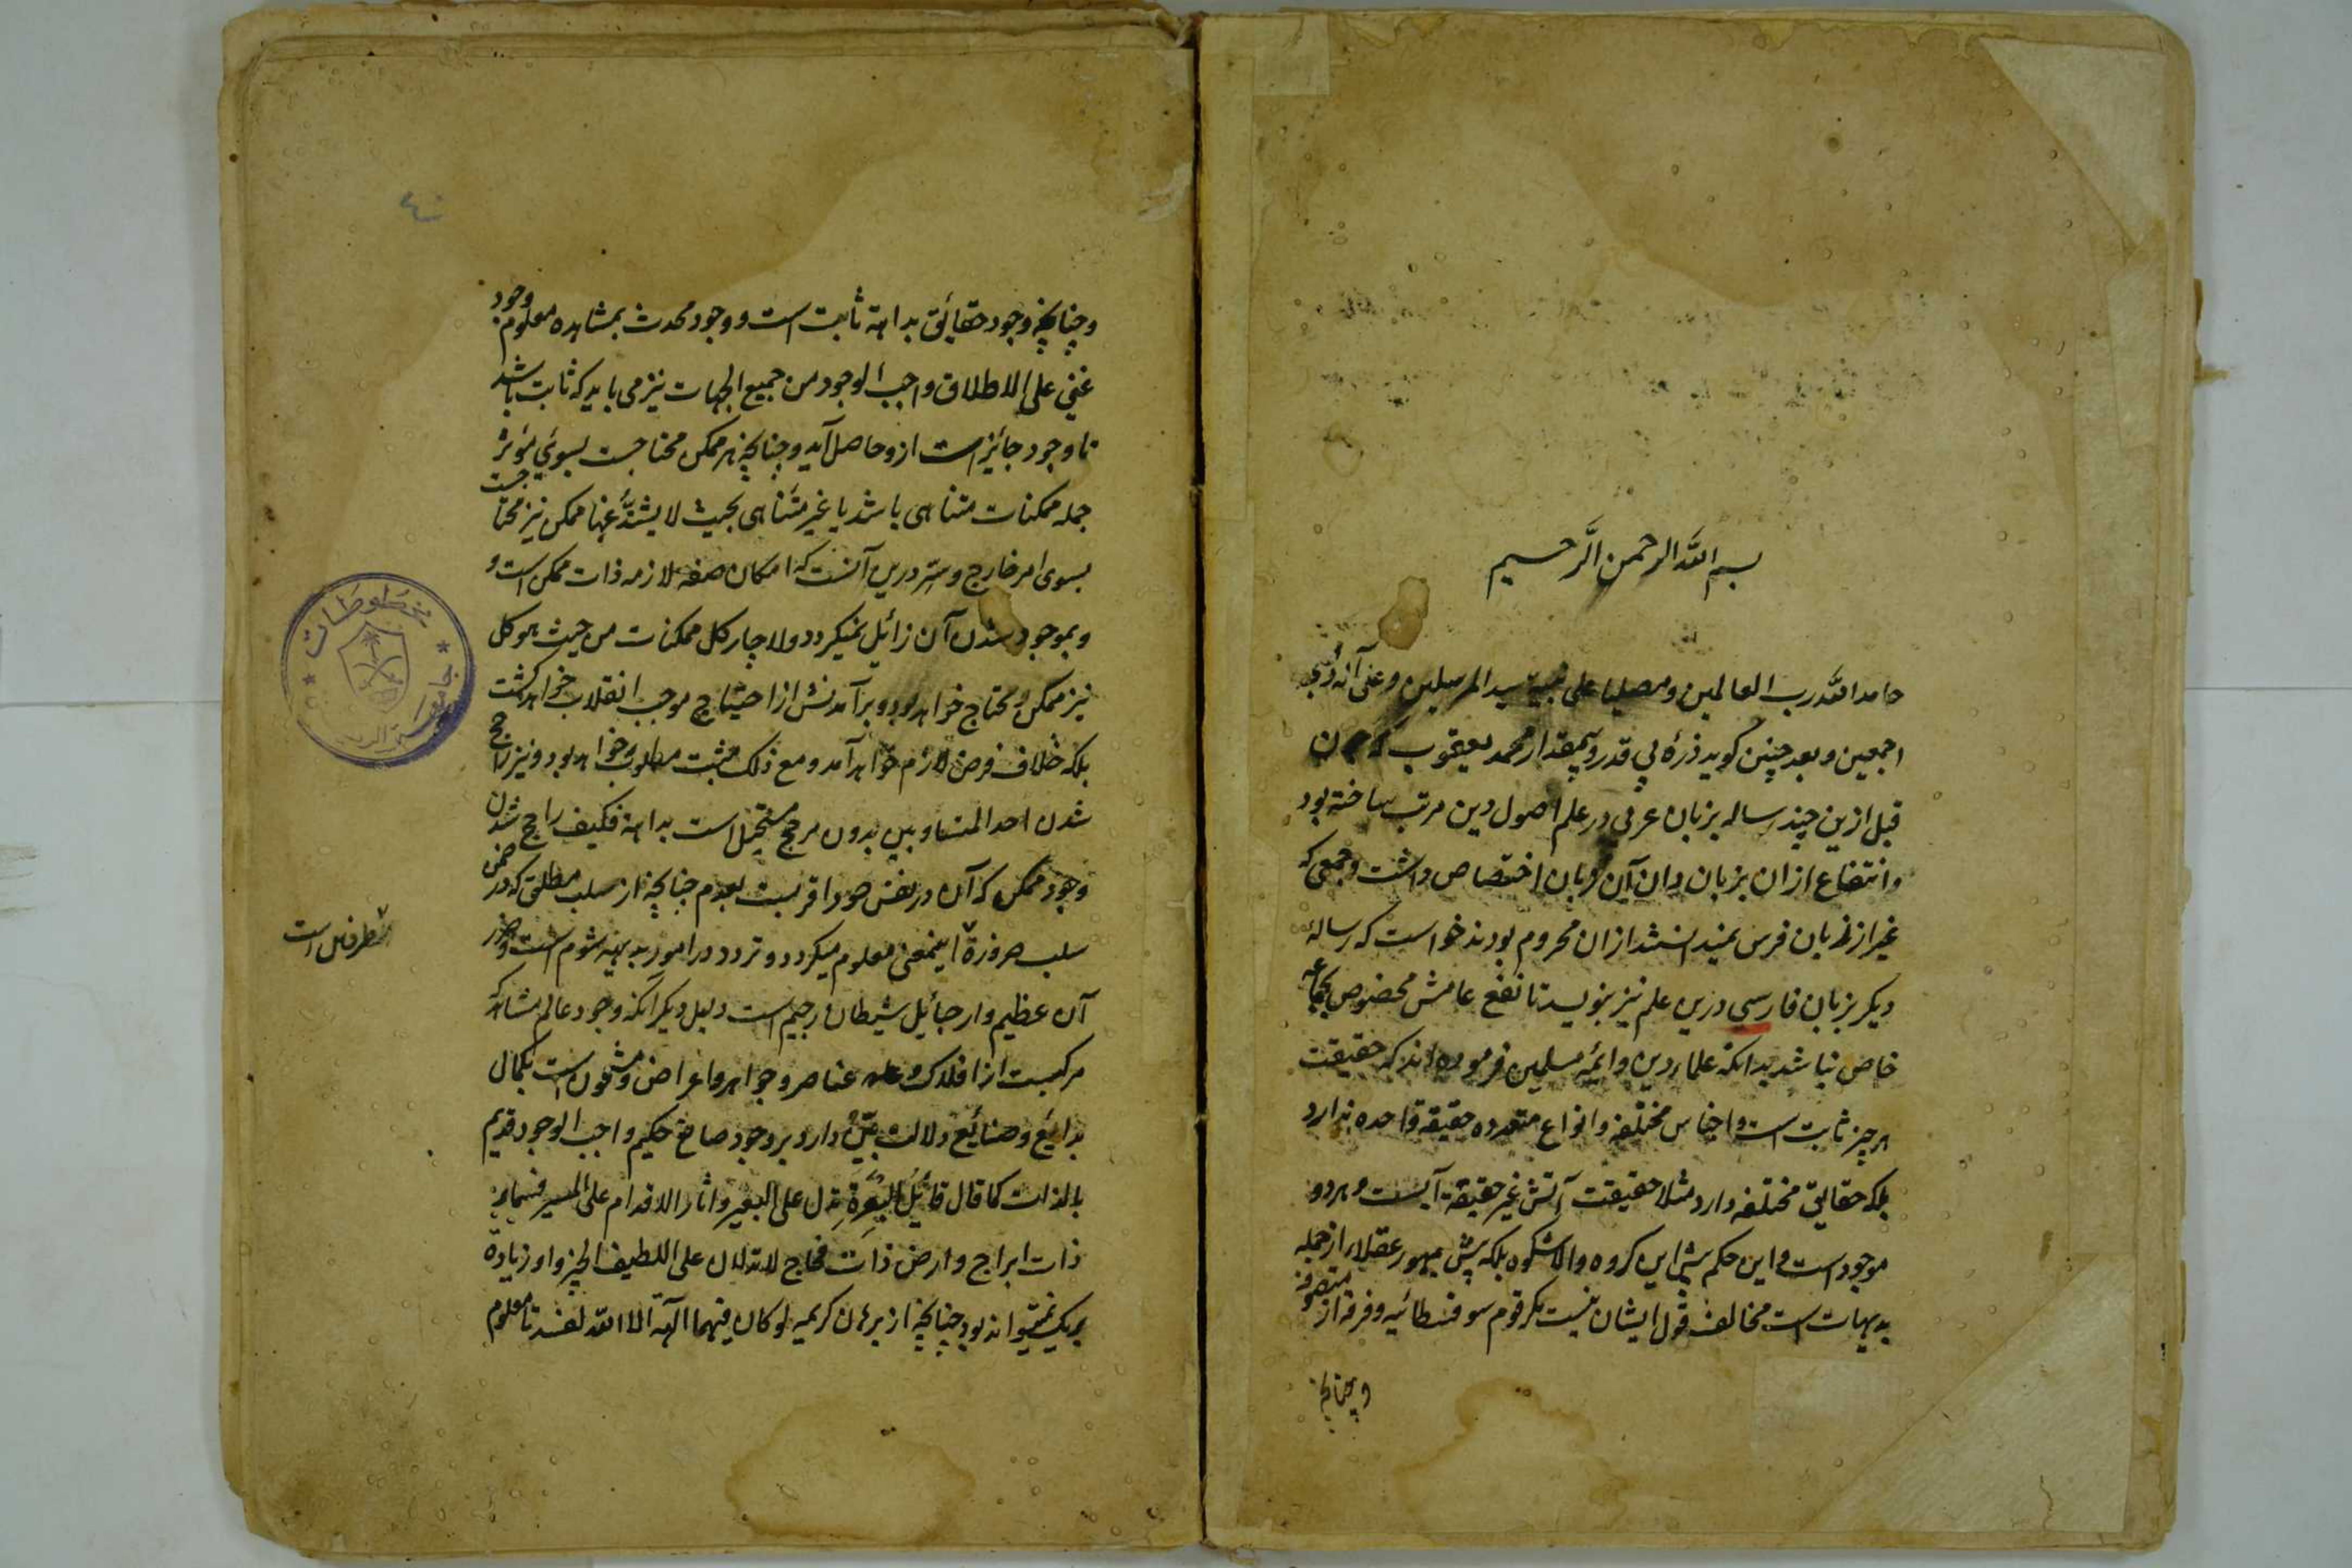 بسم الله الرحمن الرحیم
حامدا لله رب العالمین ومصلیا علی نبیه سید المرسلین وعلی آله
اجمعین وبعد چنین کوید ذرۀ بی قدر وبیمقدار محمد یعقوب که
قبل ازین چند رساله بزبان عربی در علم اصول دین مرتب ساخته بود
وانتفاع ازان بزبان دان آن زبان اختصاص داشت وجمعی که
غیر از زبان فرس نمیدانستند ازان محروم بودند خواست که رسالۀ
دیکر بزبان فارسی درین علم نیز بنویسد تا نفع عامش مخصوص بجماعه
خاص نباشد بدانکه علماء دین وائمۀ مسلمین فرموده اند که حقیقت
هر چیز ثابت است واجناس مختلفه وانواع متعدده حقیقة واحده ندارد
بلکه حقایق مختلفه دارد مثلا حقیقت آتش غیر حقیقة آبست وهردو
موجود است واین حکم پیش این کروه والاشکوه بلکه پیش جمهور عقلاء از جمله
بدیهات است مخالف قول ایشان نیست مکر قوم سوفسطائیه وفرقه از متصوفه
وچنانچه
٤
وچنانچه وجود حقائق بداهة ثابت است ووجود محدث بمشاهده معلوم وجود
غنی علی الاطلاق واجب الوجود من جمیع الجهات نیز می باید که ثابت باشد
تا وجود جائز است ازو حاصل آید وچنانچه هر ممکن محتاجست بسوئی مؤثر
جمله ممکنات متناهی باشد یا غیر متناهی بحیث لا یشذ عنها ممکن نیز محتاجست
بسوی امر خارج وسر درین آنست که امکان صفه لازمه ذات ممکن است و
وبموجود شدن آن زائل نمیکردد ولاچار کل ممکنات من حیث هو کل
نیز ممکن ومحتاج خواهد بود وبرآمدنش از احتیاج موجب انقلاب خواهد کشت
بلکه خلاف فرض لازم خواهد آمد ومع ذلک مثبت مطلوب خواهد بود ونیز راجح
شدن احد المتساویین بدون مرجح مستحیل است بداهة فکیف راجح شدن
وجود ممکن که آن در نفس خود اقربست بعدم چنانچه از سلب مطلق که در ضمن
سلب ضرورة اینمعنی معلوم میکردد وتردد در امور بدیهیه شوم است وضرر
طرفین است
آن عظیم واز حبائل شیطان رجیم است دلیل دیکر آنکه وجود عالم مشاهد که
مرکبست از افلاک وعناصر وجواهر واعراض ومشحون است بکمال
بدائع وصنائع دلالت بین دارد بر وجود صانع حکیم واجب الوجود قدیم
بالذات کما قال قائل البعرة تدل علی البعیر واثار الاقدام علی المسیر فسماء
ذات ابراج وارض ذات فجاج لا تدلان علی اللطیف الخبیر واو زیادة
بریک نمیتواند بود چنانچه از برهان کریمه لو کان فیهما آلهة الا الله لفسدتا معلوم
مخطوطات
جامعة الریاض